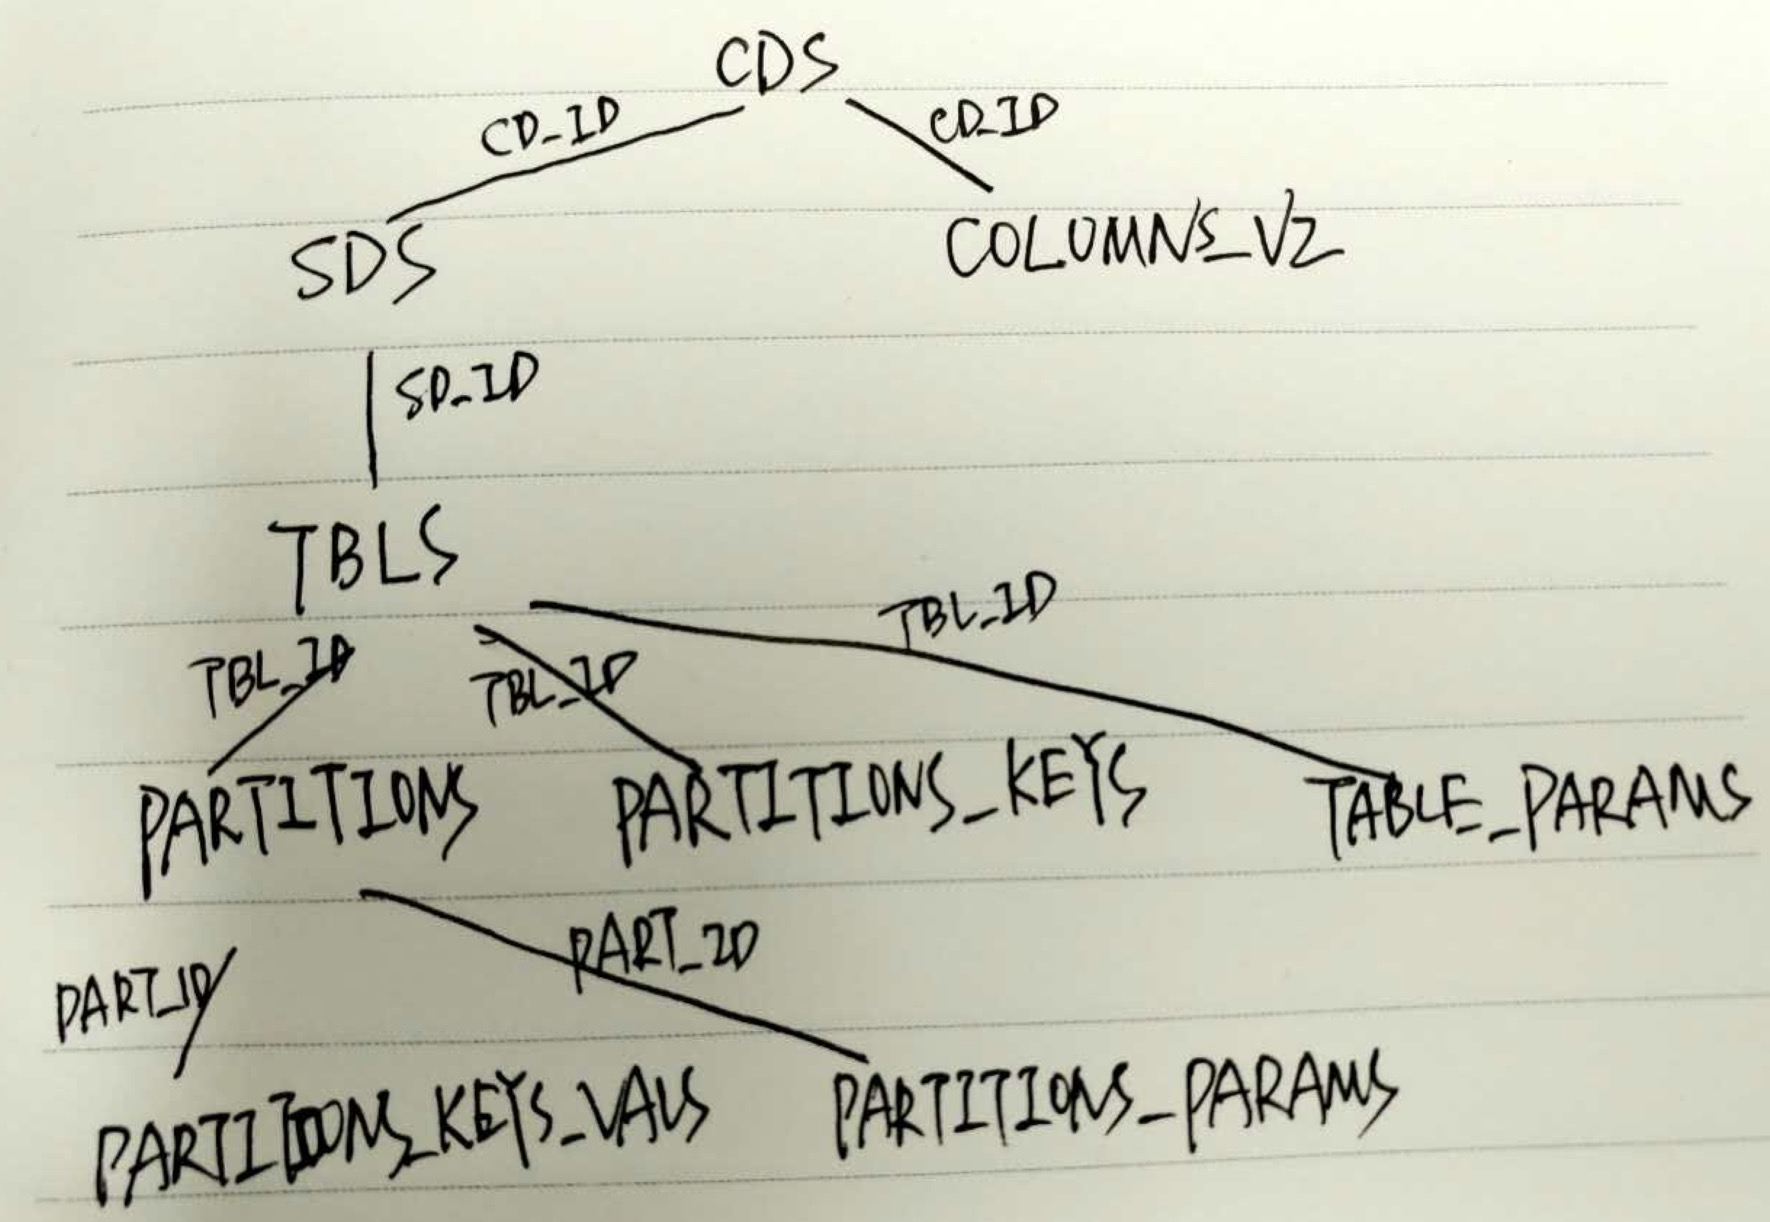 CDS
CD_ID CD_ID
SDS COLUMNS_V2
SD_ID
TBLS
TBL_ID TBL_ID TBL_ID
PARTITIONS PARTITIONS_KEYS TABLE_PARAMS
PART_ID PART_ID
PARTITIONS_KEYS_VALS PARTITIONS_PARAMS